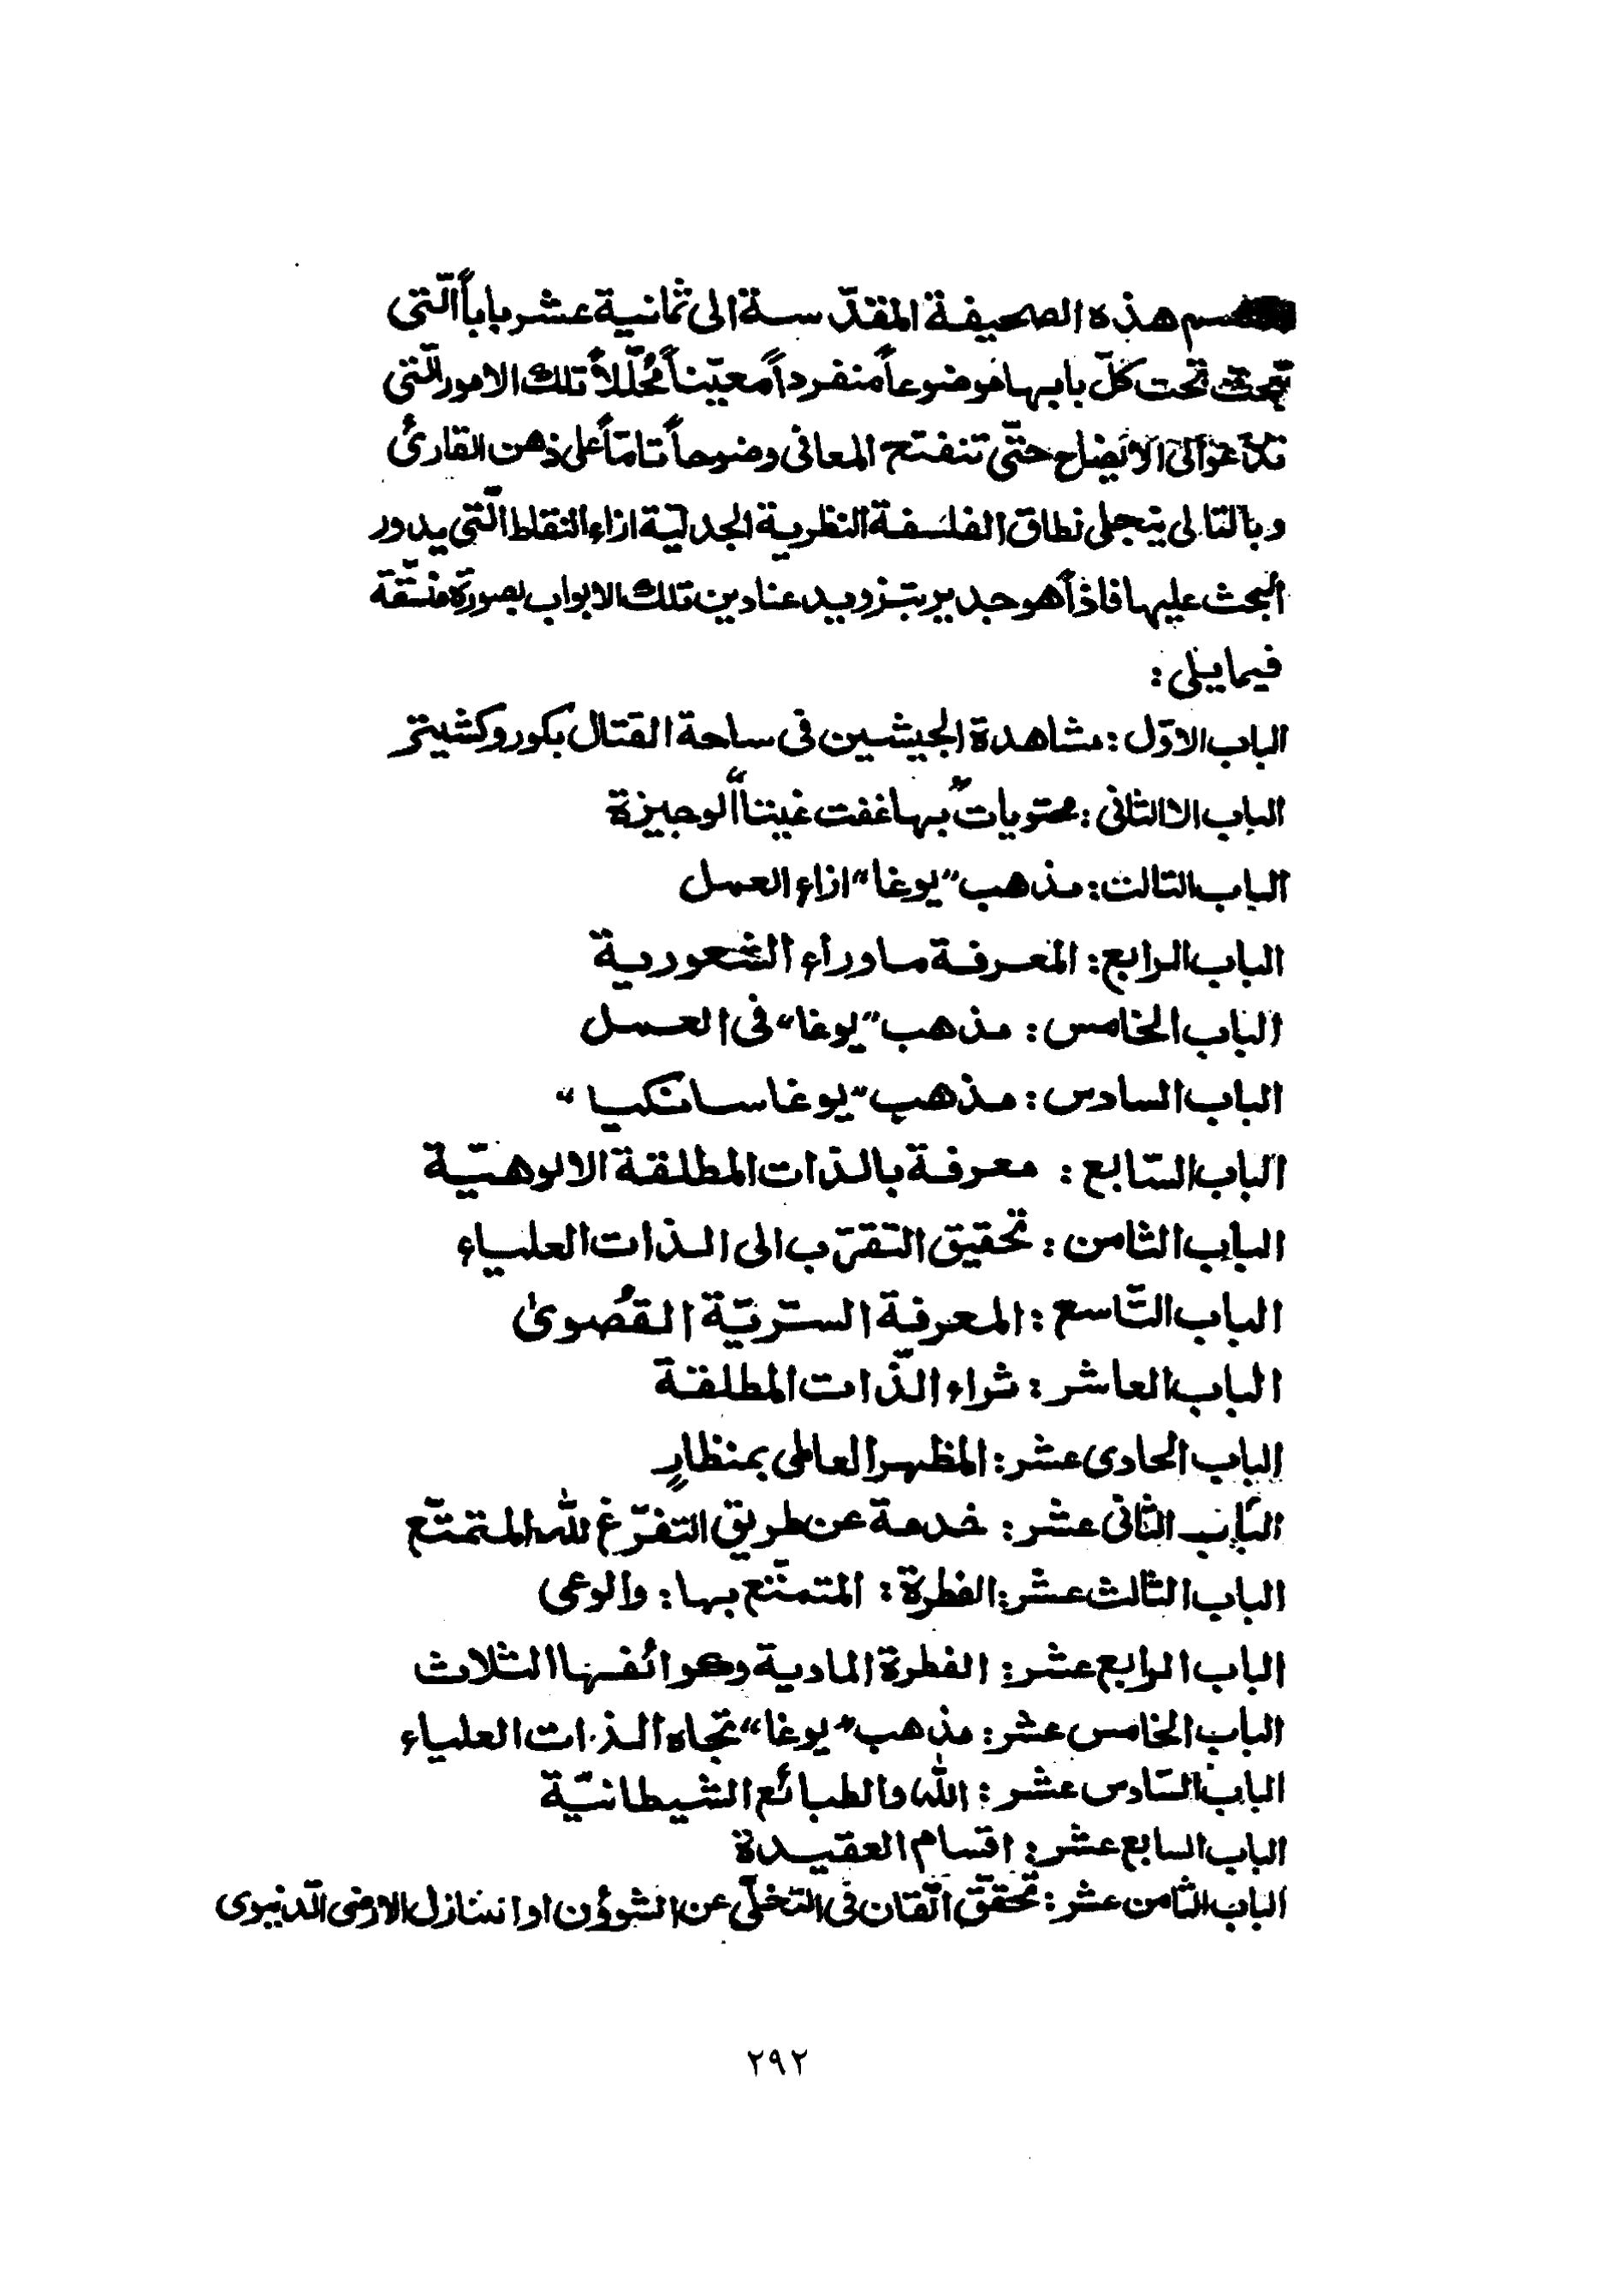 هذه الصحيفة المقدّسة الى ثمانية عشر باباً الّتي
تبحث تحت كلّ بابها موضوعاً منفرداً معيّناً مُحلّلاً تلك الامور الّتي
تدعو الى الايضاح حتّى تنفتح المعانى وضوحاً تامّاً على ذهن القارئ
وبالتالى ينجلى نطاق الفلسفة النظرية الجدليّة ازاء النقاط الّتي يدور
البحث عليها فاذاً هو جدير بتزويد عنادين تلك الابواب بصورة منسّقة
فيما يلى :
الباب الاوّل : مشاهدة الجيشين فى ساحة القتال بكوروكشيتر
الباب الاالثانى : محتويات بهاغفت غيتا الوجيزة
الباب الثالث : مذهب "يوغا" ازاء العمل
الباب الرابع : المعرفة ماوراء الشعورية
الباب الخامس : مذهب "يوغا" فى العمل
الباب السادس : مذهب "يوغا سانكيا"
الباب السّابع : معرفة بالذات المطلقة الالوهيّة
الباب الثامن : تحقيق التقرّب الى الذات العلياء
الباب التّاسع : المعرفة السّريّة القُصوىٰ
الباب العاشر : ثراء الذّات المطلقة
الباب الحادى عشر : المظهر العالمى بمنظارٍ
الباب الثّانى عشر : خدمة عن طريق التفرّغ لله المتمتّع
الباب الثّالث عشر : الفطرة : المتمتّع بها : والوعى
الباب الرابع عشر : الفطرة المادية وكوائفها الثلاث
الباب الخامس عشر : مذهب "يوغا" تجاه الذات العلياء
الباب السّادس عشر : الله والطبائع الشيطانيّة
الباب السابع عشر : اقسام العقيدة
الباب الثّامن عشر : تحقّق اتّقان فى التخلّى عن الشوؤن او انتنازل الارضى الدنيوى
٢٩٢